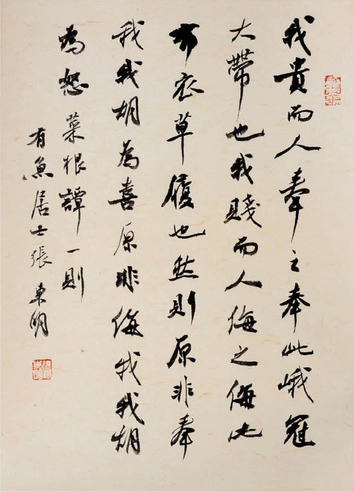 我貴而人奉之奉此峨冠
大帶也我賤而人侮之侮此
布衣草履也然則原非奉
我我胡為喜原非侮我我胡
為怒 菜根譚一則
有魚居士張東明